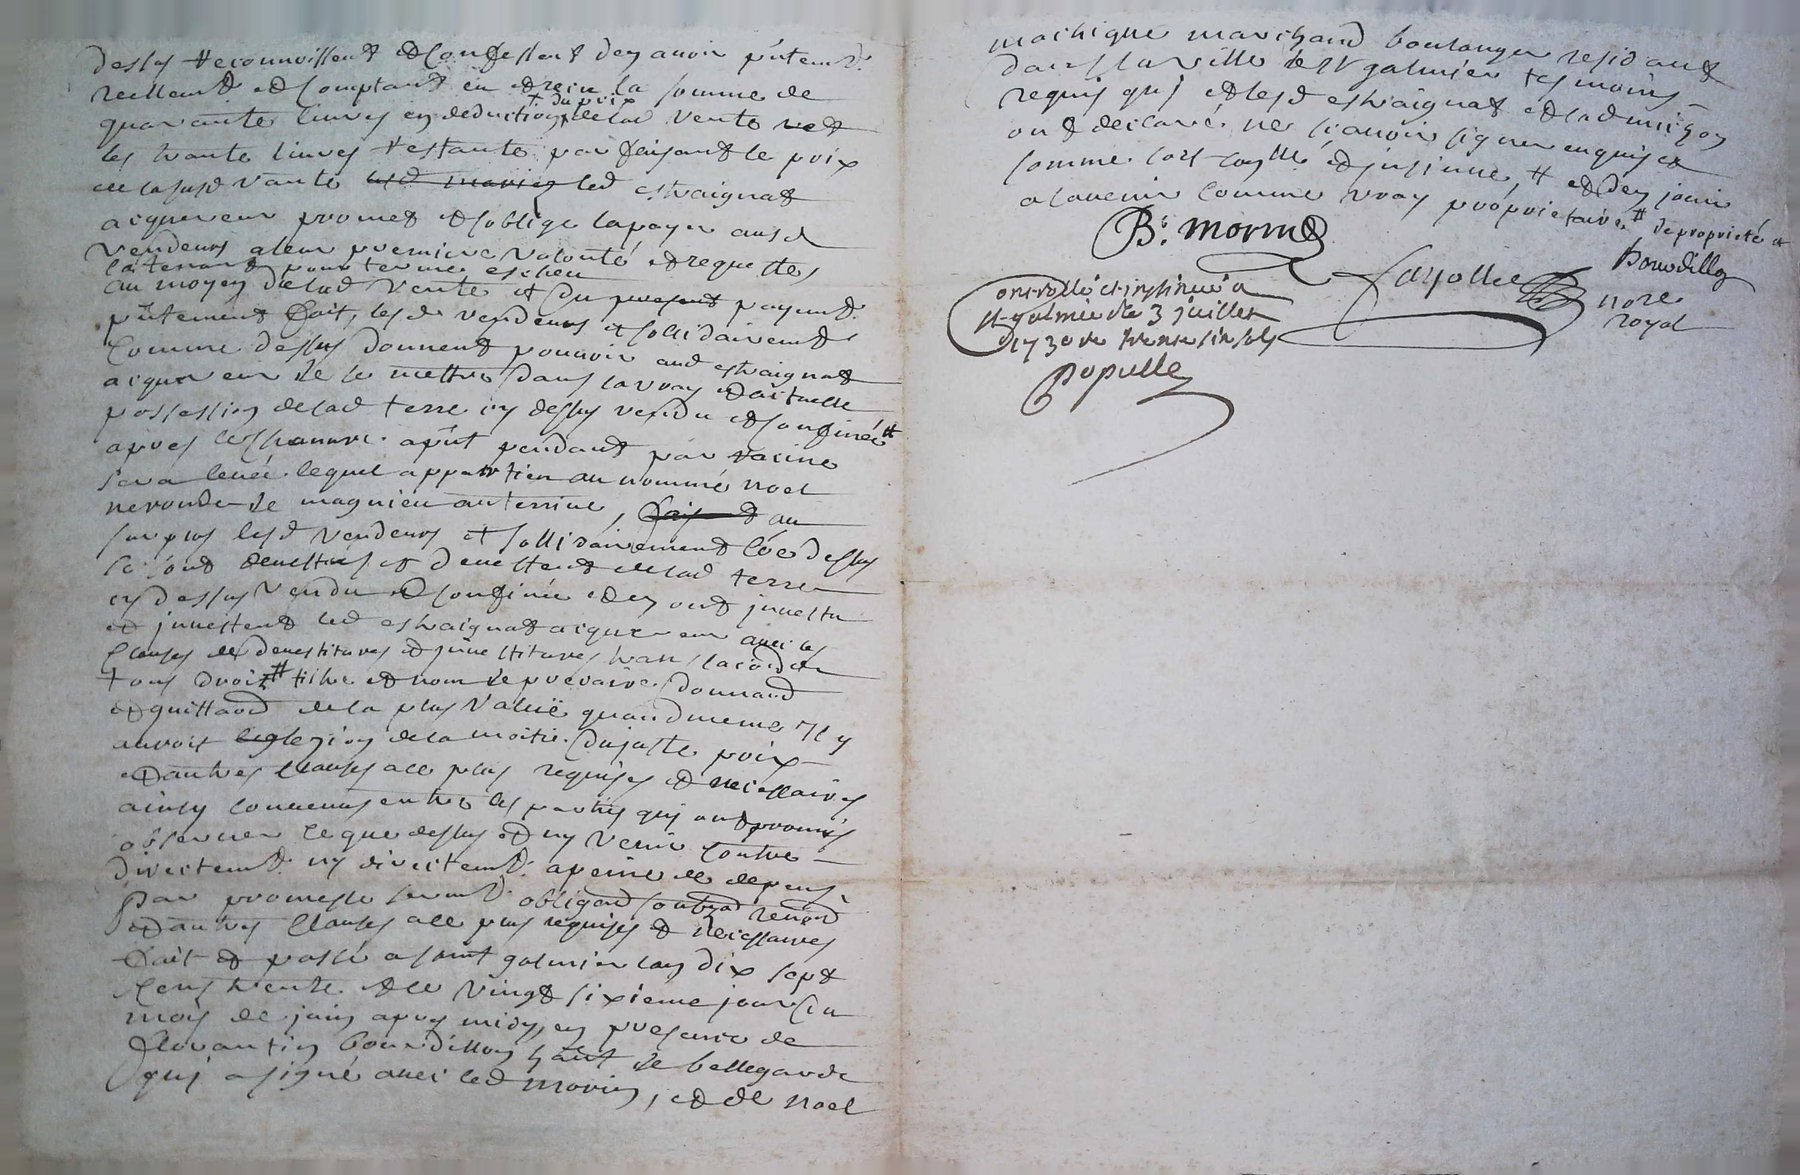 dessus reconnoissent et confessent den avoir p̃ntem̃t
reellem̃t et comptant eu et receu la somme de
quarante livres en deduction + du prix de lad vente et
les trante livres restante parfaisant le prix
de la susd vante led estraignat
acquereur promet et soblige la payer ausd
vendeurs a leur premiere volonté et requette,
la tenant pour terme escheu
au moyen de lad vente et du present payem̃t
p̃ntement fait, lesd vendeurs et sollidairem̃t
comme dessus donnent pouvoir aud estraignat
acquereur de se mettre dans la vray et actuelle
possession de lad terre cy dessus vendu et confinée #
apres le chanvre apñt pendant par racine
sera levée lequel appartien au nommé noel
neronde de magnieu auterine, au
surplus lesd vendeurs et sollidairement cõe dessus
se sont devettus et devettent de lad terre
cy dessus vendu et confinée et en ont jnvestu
et jnvestent led estraignat acquereur avec les
clauses de devestitures et jnvestitures trans laõn de
tous droit # tiltre et nom de precaire, donnand
et quittand de la plus value quand meme jl y
auroit lezion de la moitié du juste prix
et autres clauses a ce plus requises et necessaires
ainsy convenus entre les parties quj ont promis
observer ce que dessus et ny venir contre
directem̃t ny directem̃t a peine de depens
par promesse serm̃t obligaõns soubzõn renõn
et autres clauses a ce plus requises et necessaires
fait et passé a saint galmier lan dix sept
cens trente et le vingt sixieme jour du
mois de juin apres midy, en presence de
florantin bourdillon hãnt de bellegarde
quj a signé avec led morin, et de noel
machique marchand boulanger residant
dans la ville de St galmier tesmoins
requis quj et lesd estraignat et lad
ont declaré ne sçavoir signer enquis et
somme soit conllé et jnsinué, # et den jouir
a lavenir comme vray proprietaire # de propriété et
Bs. morin
fayolle
bourdillon
nore
royal
controllé et jnsinué a
St galmier le 3 juillet
1730
populle